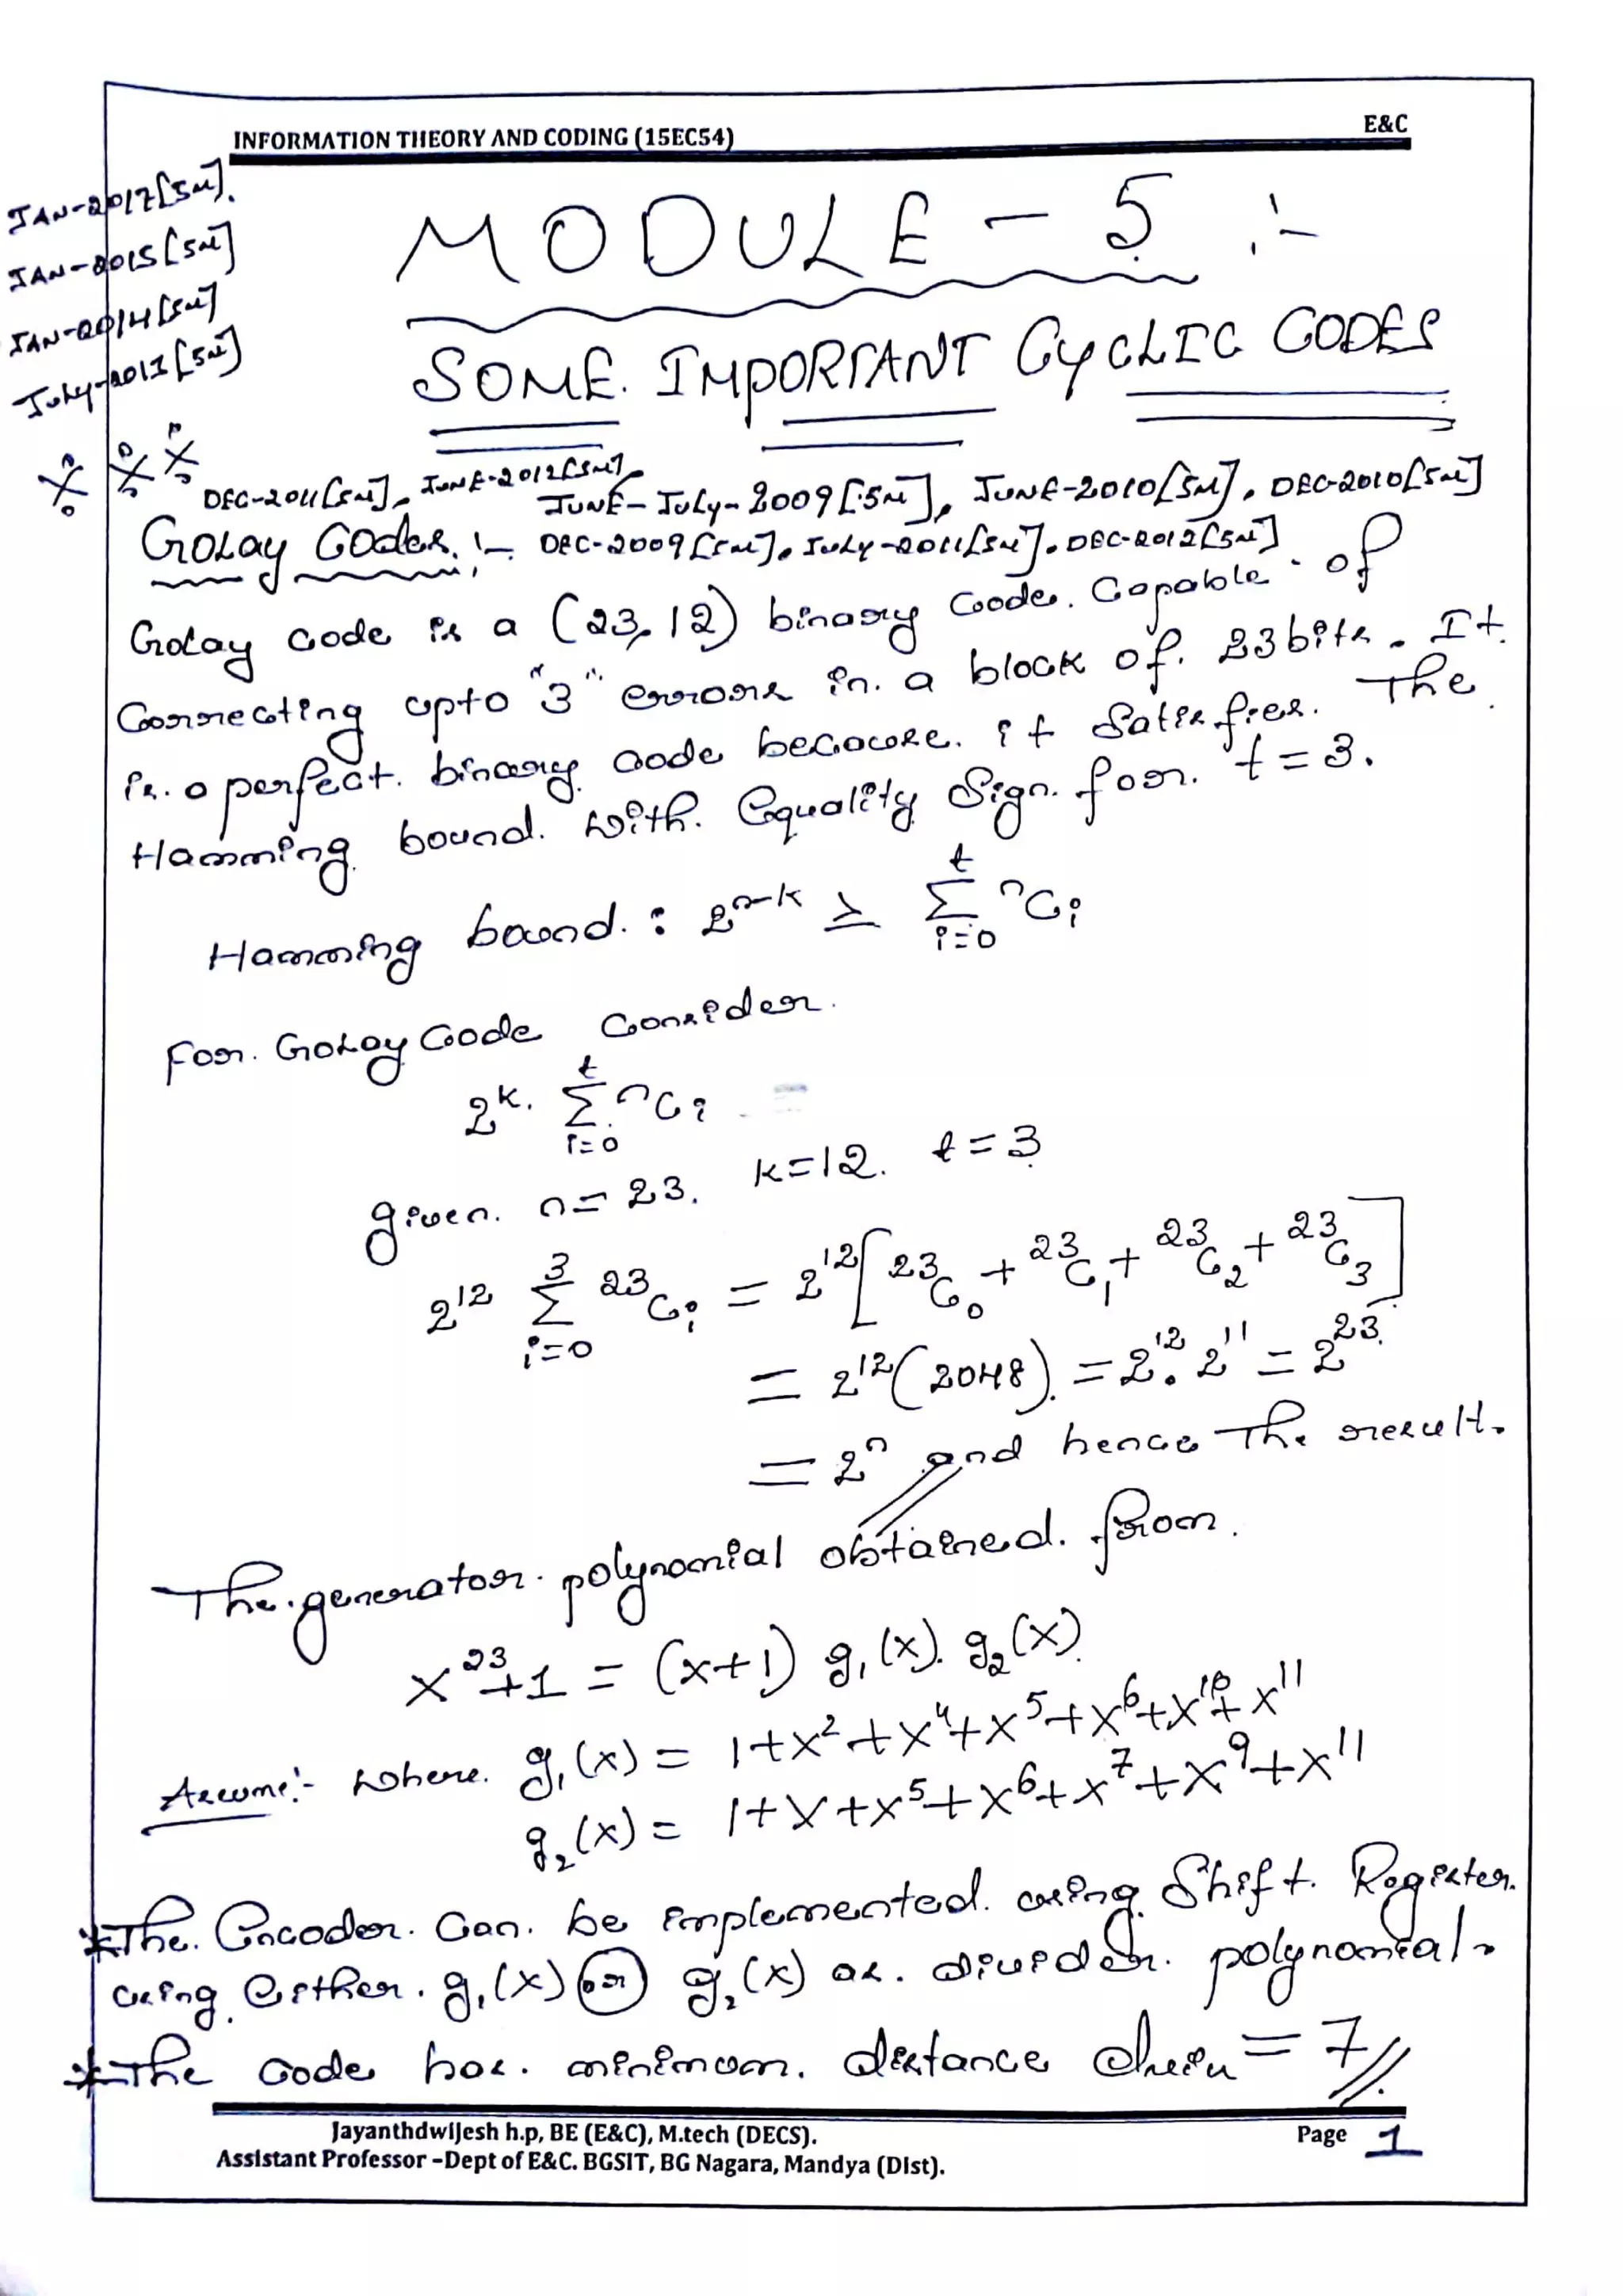 INFORMATION THEORY AND CODING (15EC54) E&C
JAN-2017[5M].
JAN-2015[5M]
JAN-2014[5M]
July-2013[5M]
MODULE - 5 :-
SOME. IMPORTANT CYCLIC CODES
DEC-2011[5M], JUNE-2012[5M],
JUNE-July-2009[5M], JUNE-2010[5M], DEC-2010[5M]
Golay Codes :- DEC-2009[5M], July-2011[5M], DEC-2012[5M]
Golay code is a (23,12) binary Code. Capable of
Correcting upto "3" errors in. a block of. 23 bits. It
is. a perfect. binary code because. it Satisfies. The
Hamming bound. with. Equality Sign. for. t=3.
Hamming bound. : 2^{n-k} ≥ \sum_{i=0}^{t} ^nC_i
For. Golay Code Consider.
2^k. \sum_{i=0}^{t} ^nC_i
given. n=23. k=12. t=3
2^{12} \sum_{i=0}^{3} ^{23}C_i = 2^{12}[^{23}C_0 + ^{23}C_1 + ^{23}C_2 + ^{23}C_3]
= 2^{12}(2048). = 2^{12}. 2^{11} = 2^{23}.
= 2^n and hence The result.
The. generator. polynomial obtained. from.
x^{23}+1 = (x+1) g_1(x). g_2(x).
Assume:- where. g_1(x) = 1+x^2+x^4+x^5+x^6+x^{10}+x^{11}
g_2(x) = 1+x+x^5+x^6+x^7+x^9+x^{11}
*The. Encoder. Can. be implemented. using Shift. Register.
using Either. g_1(x) (or) g_2(x) as. divider. polynomial.
*The Code has. minimum. distance dmin = 7//.
Jayanthdwijesh h.p, BE (E&C), M.tech (DECS). Page 1
Assistant Professor –Dept of E&C. BGSIT, BG Nagara, Mandya (Dist).